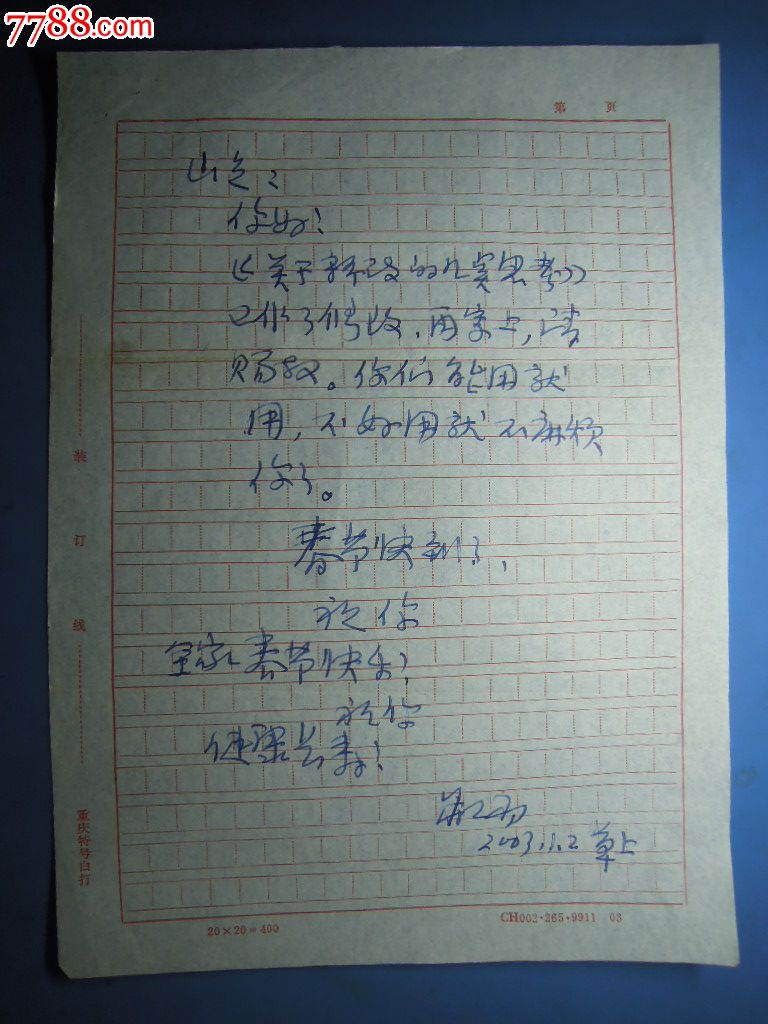 7788.com
第 页
你好!
《关于 的几点思考》
已作了修改,再寄上,请
赐教。你们能用就
用,不好用就不麻烦
你了。
春节快到了,
祝你
全家春节快乐!
祝你
健康长寿!
2003.1.2 草上
装
订
线
重庆特号白打
20×20=400
CH002·265·9911 03